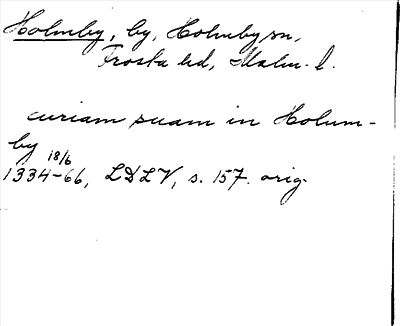 Holmby, by, Holmby sn,
Frosta hd, Malm. l.
curiam suam in Holum-
by
18/6
1334-66, LDLV, s. 157. orig.